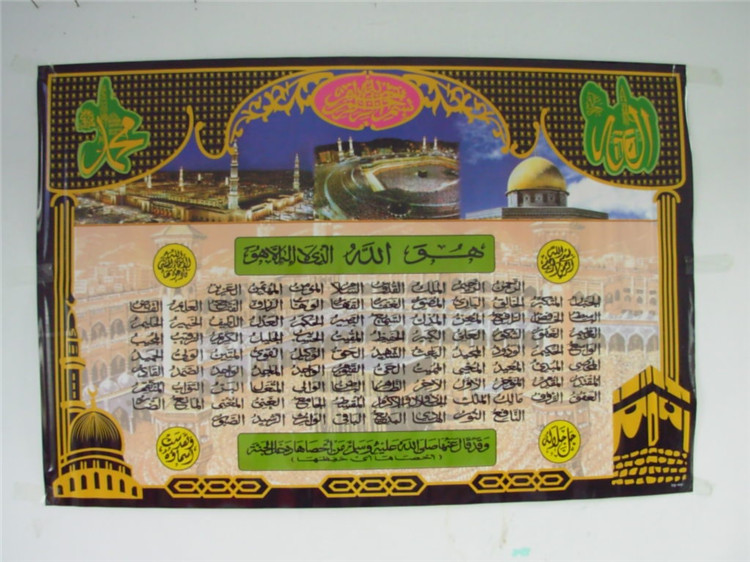 بسم الله الرحمن الرحيم
الله
محمد
هو الله الذي لا إله إلا هو
الرحمن الرحيم الملك القدوس السلام المؤمن المهيمن العزيز
الجبار المتكبر الخالق البارئ المصور الغفار القهار الوهاب الرزاق الفتاح العليم القابض
الباسط الخافض الرافع المعز المذل السميع البصير الحكم العدل اللطيف الخبير الحليم
العظيم الغفور الشكور العلي الكبير الحفيظ المقيت الحسيب الجليل الكريم الرقيب المجيب
الواسع الحكيم الودود المجيد الباعث الشهيد الحق الوكيل القوي المتين الولي الحميد
المحصي المبدئ المعيد المحيي المميت الحي القيوم الواجد الماجد الواحد الصمد القادر
المقتدر المقدم المؤخر الأول الآخر الظاهر الباطن الوالي المتعالي البر التواب المنتقم
العفو الرؤوف مالك الملك ذو الجلال والإكرام المقسط الجامع الغني المغني المانع الضار
النافع النور الهادي البديع الباقي الوارث الرشيد الصبور
جل جلاله
وقد قال عنها صلى الله عليه وسلم من أحصاها دخل الجنة
(أحصاها أي حفظها)